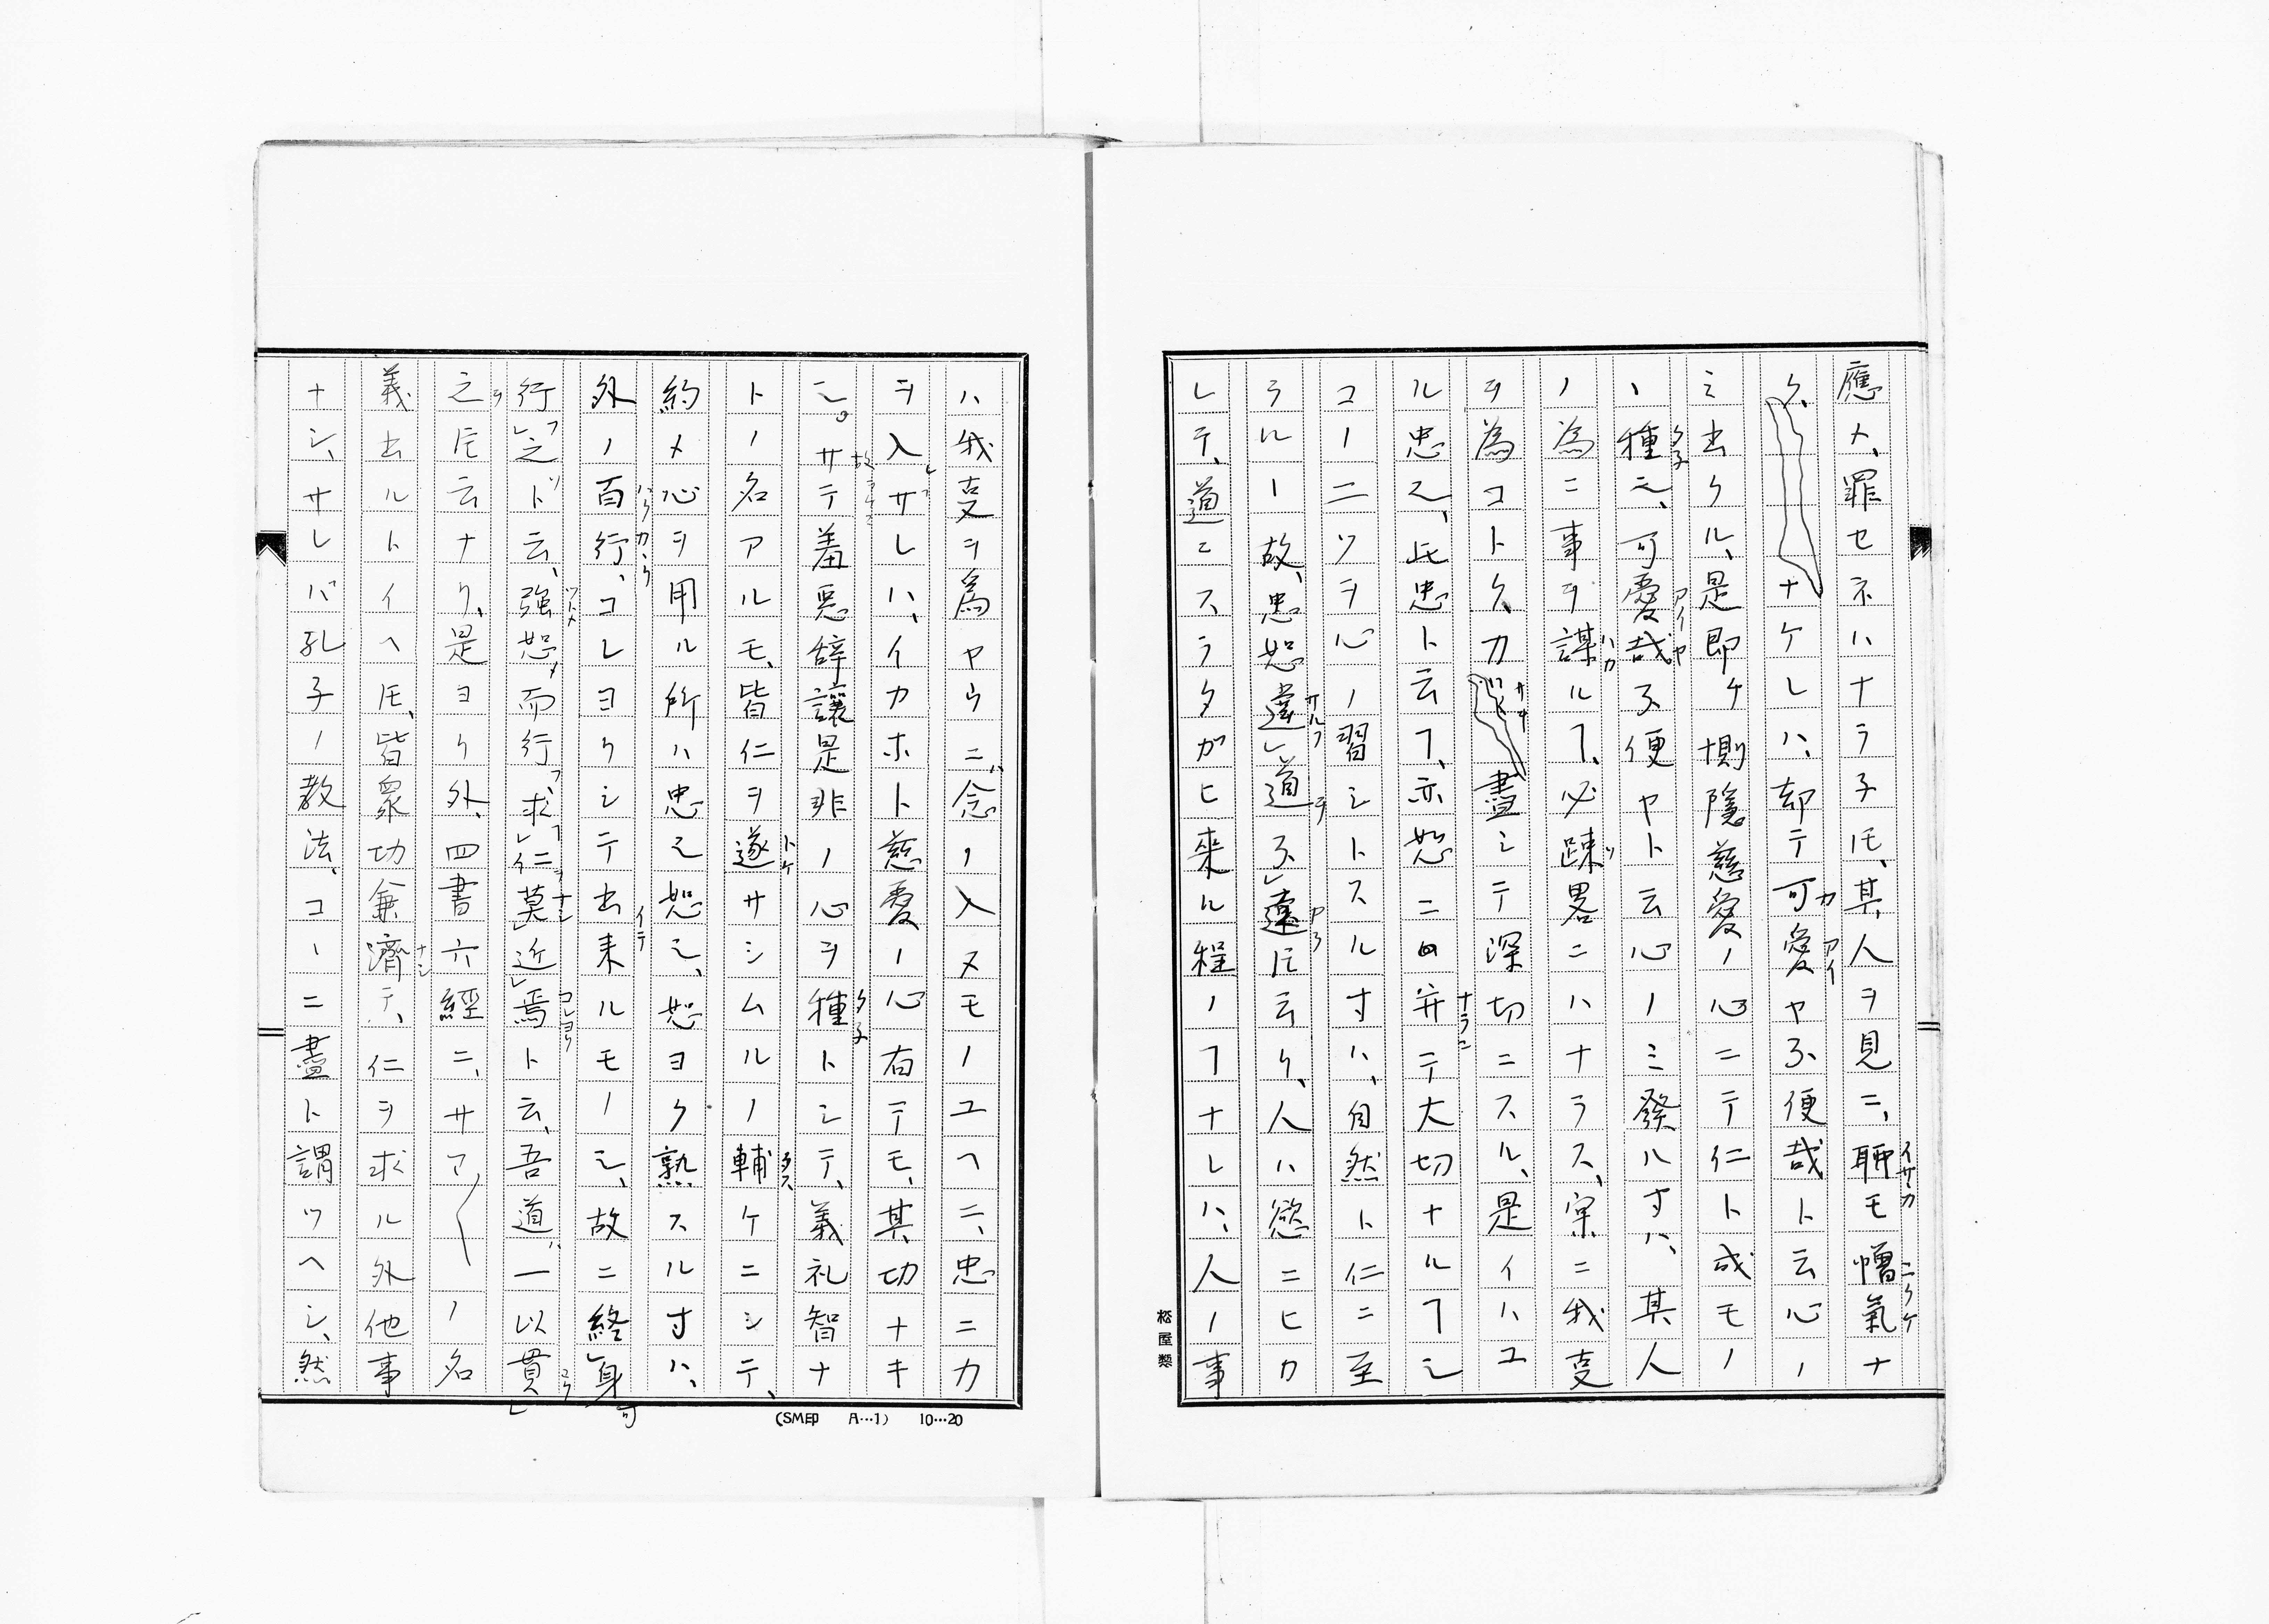 應メ、罪セネハナラ子𪜈、其人ヲ見ニ、聊モ憎氣ナ
ク、ナケレハ、却テ可愛ヤ不便哉ト云心ノ
ミ出クル、是即ケ惻隠慈愛ノ心ニテ仁ト成モノ
ヽ種ニ、可愛哉不便ヤト云心ノミ發ル寸ハ、其人
ノ為ニ事ヲ謀ルヿ、必踈畧ニハナラス、宲ニ我叓
ヲ為コトク、カ盡シテ深切ニスル、是イハユ
ル忠也、此忠ト云ヿ、亦恕ニ并テ大切ナルヿ也
コノ二ツヲ心ノ習シトスル寸ハ、自然ト仁ニ至
ラルヽ故、忠恕違道不遠𪜈云リ、人ハ慾ニヒカ
レテ、道ニスラタガヒ来ル程ノヿナレハ、人ノ事
ハ我叓ヲ為ヤウニ、念ノ入ヌモノユヘニ、忠ニカ
ヲ入サレハ、イカホト慈愛ノ心有テモ、其切ナキ
也。サテ羞悪辞讓是非ノ心ヲ種トシテ、義礼智ナ
トノ名アルモ、皆仁ヲ遂サシムルノ輔ケニシテ、
約メ心ヲ用ル所ハ忠也恕也、恕ヨク熟スル寸ハ、
外ノ百行、コレヨリシテ出来ルモノ也、故ニ終身可
行之ト云、強恕而行、求仁莫近焉ト云、吾道一以貫
之𪜈云ナリ、是ヨリ外、四書六經ニ、サマ〱ノ名
義出ルトイヘ𪜈、皆衆功兼濟テ、仁ヲ求ル外他事
ナシ、サレバ孔子ノ教法、コヽニ盡ト謂ツヘシ、然
松屋製
(SM印 A…1) 10…20